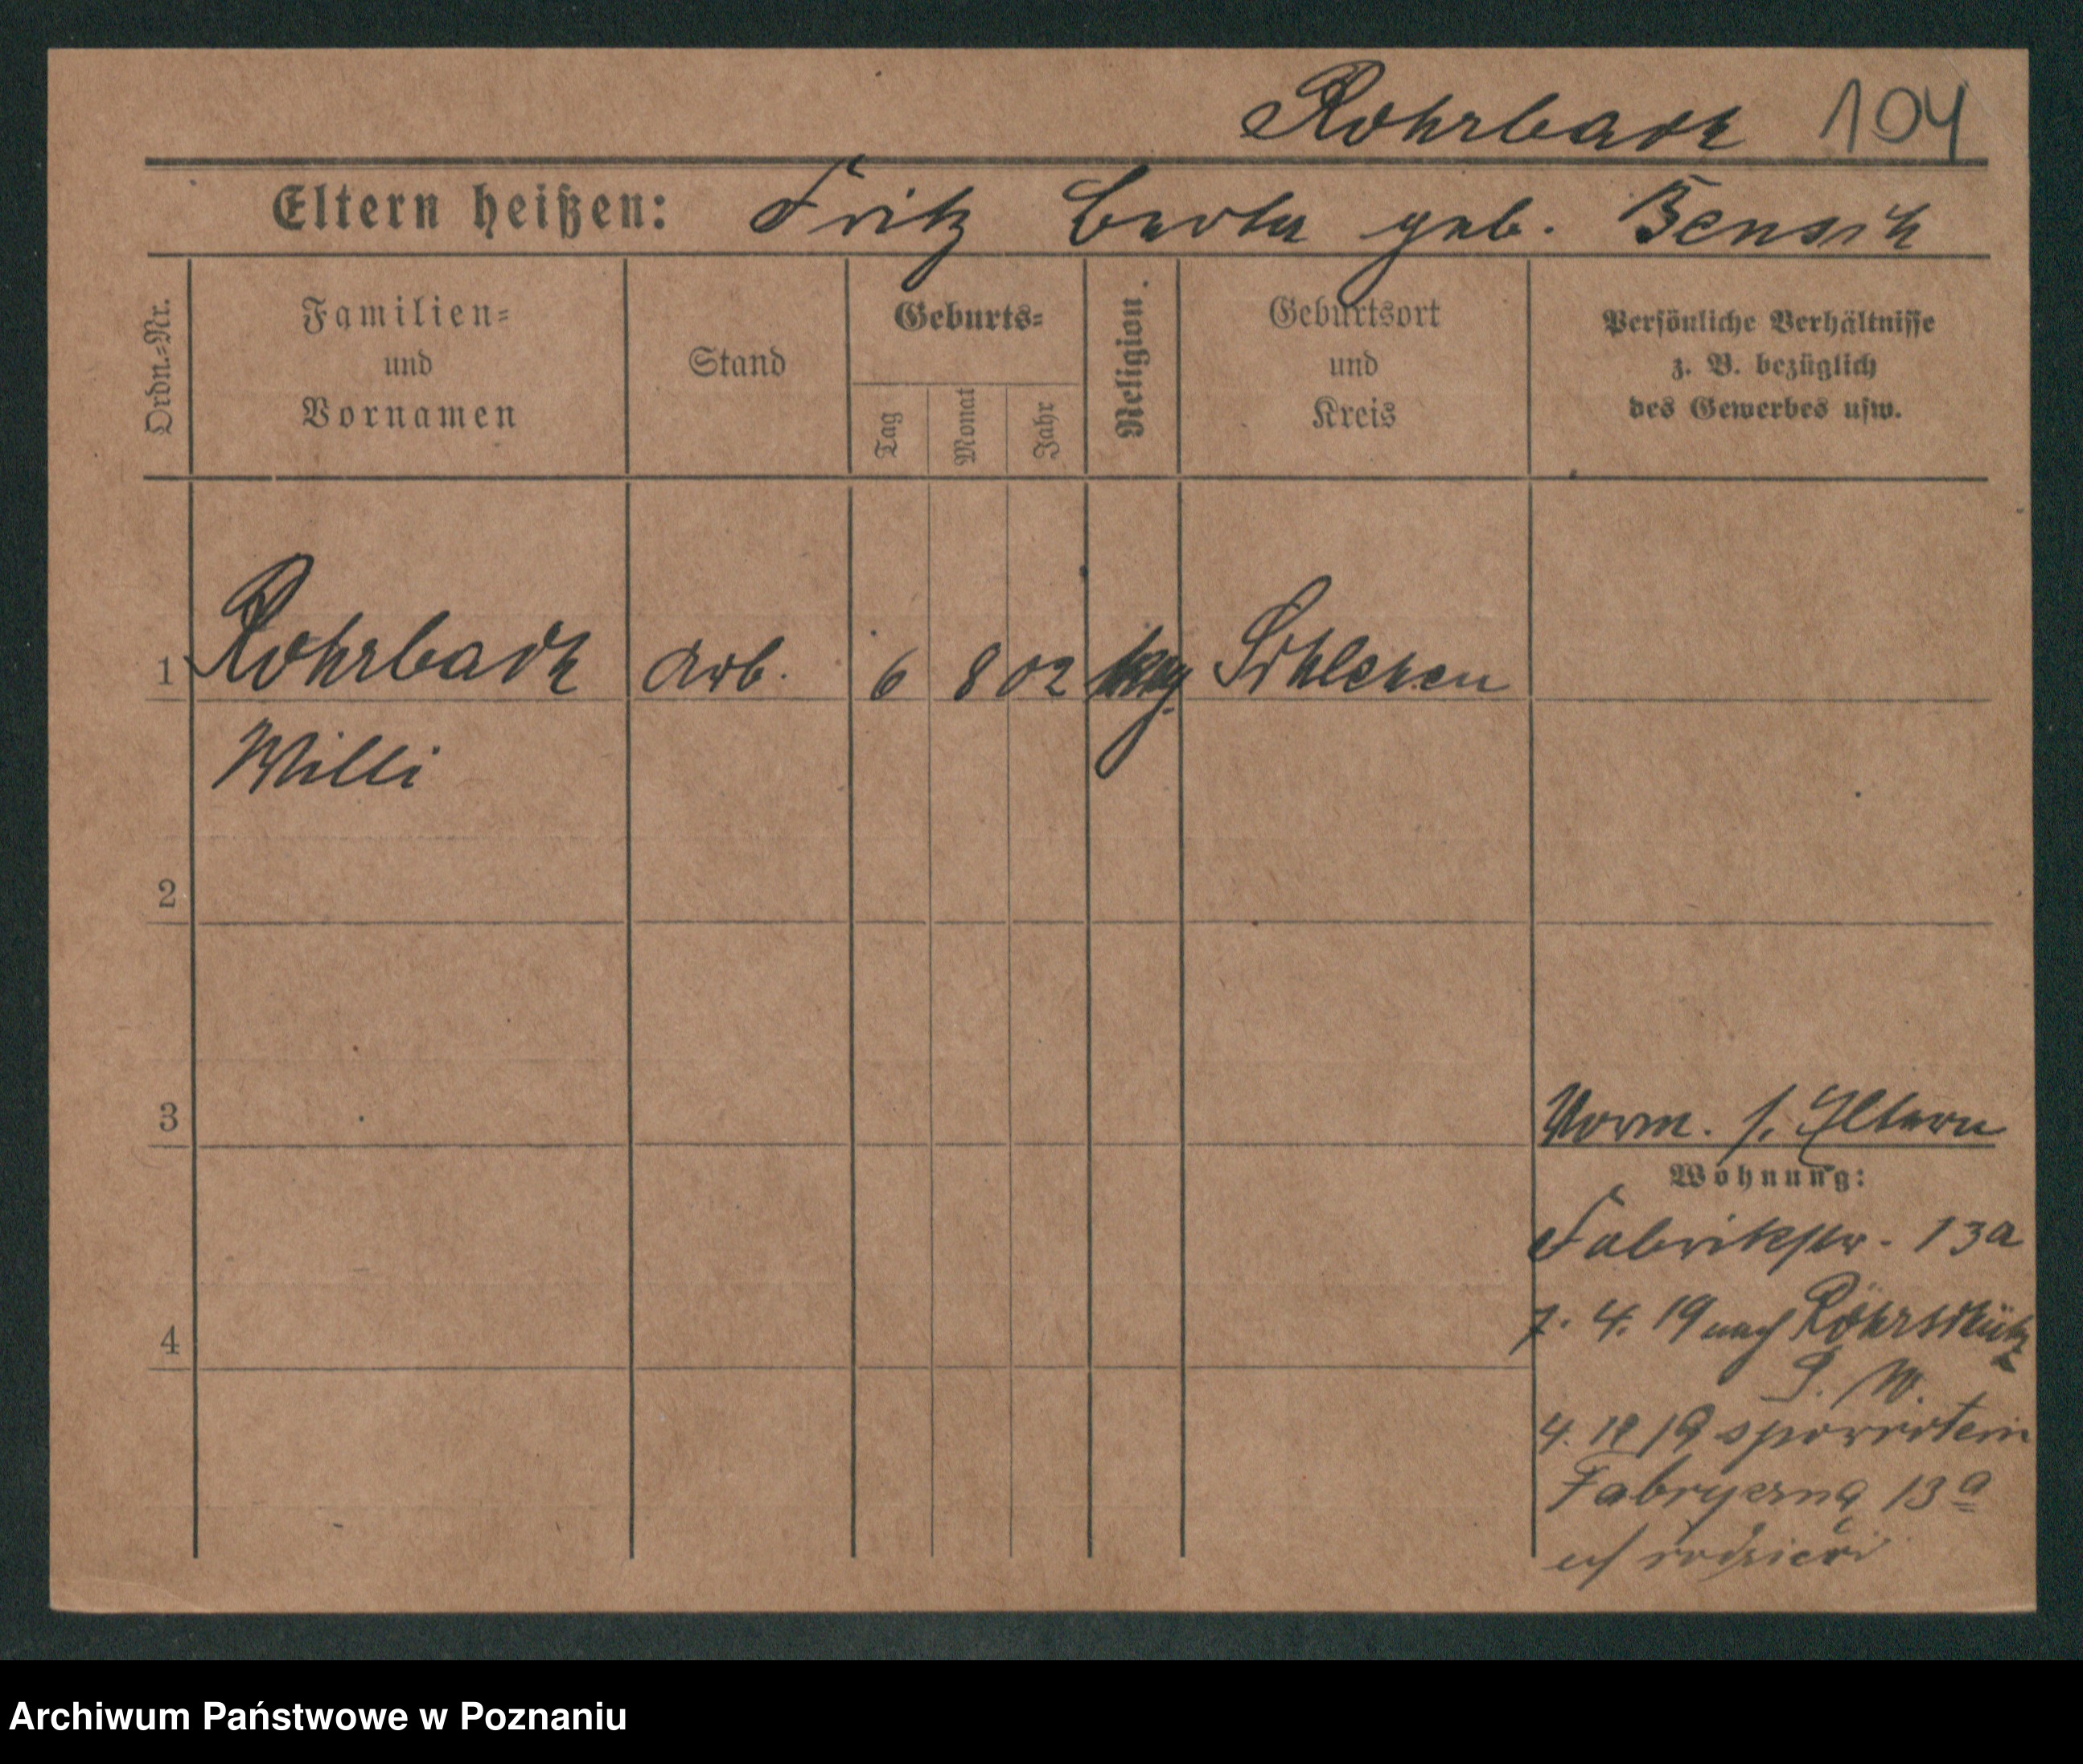 Rohrbach 104
Eltern heißen: Fritz Berta geb. Bensch
Ordn.=Nr.
Familien=
und
Vornamen
Stand
Geburts=
Tag
Monat
Jahr
Religion.
Geburtsort
und
Kreis
Persönliche Verhältnisse
z. B. bezüglich
des Gewerbes usw.
1 Rohrbach Arb. 6 8 02 Schlehen
Willi
2
3
Vorm. s. Eltern
Wohnung:
Fabrikstr. 13a
7. 4. 19 nach Röhrschütz
4
4. 19 spowrotem
Fabryczna 13a
rodzicói
Archiwum Państwowe w Poznaniu